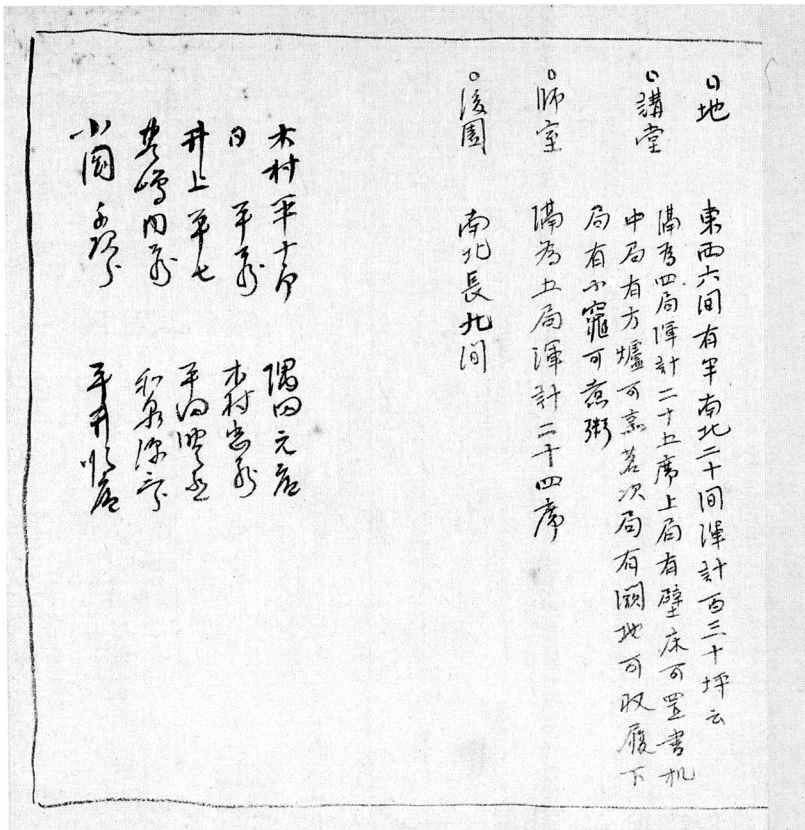 ○地 東西六间有半南北二十间渾計百三十坪云
○講堂 隔為四局渾計二十五席上局有壁床可置書机
中局有方爐可烹茗次局有闕地可収履下
局有小竈可煮粥
○師室 隔為五局渾計二十四席
○後園 南北長九间
木村平十郎 隅田元
同 平 木村忠
井上平七 平
嶋 和泉
小園 平井